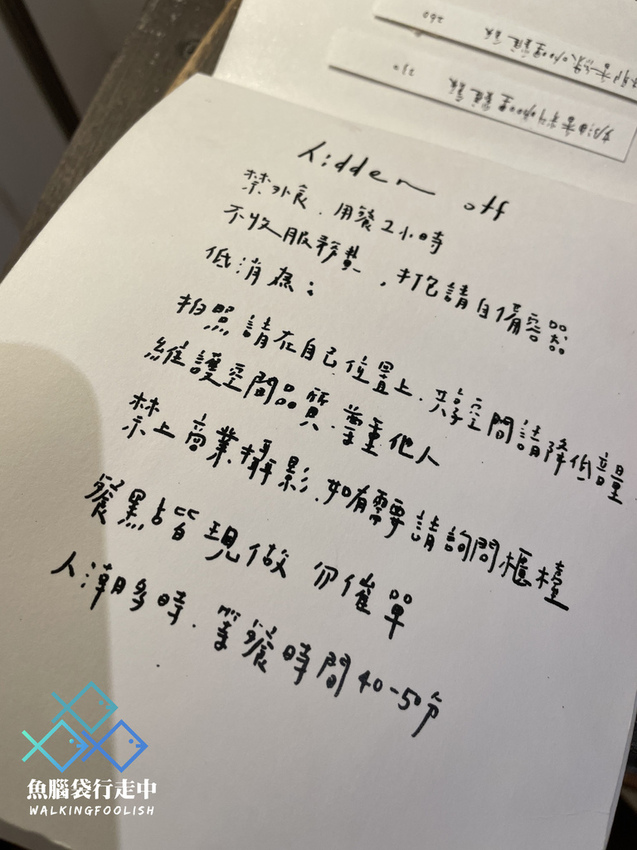 260
210
hidden off
禁外食．用餐2小時
不收服務費，打包請自備容器
低消為：
拍照請在自己位置上．共享空間請降低音量
維護空間品質．尊重他人
禁止商業攝影．如有需要請詢問櫃檯
餐點皆現做 勿催單
人潮多時．等餐時間40-50分
魚腦袋行走中
WALKINGFOOLISH